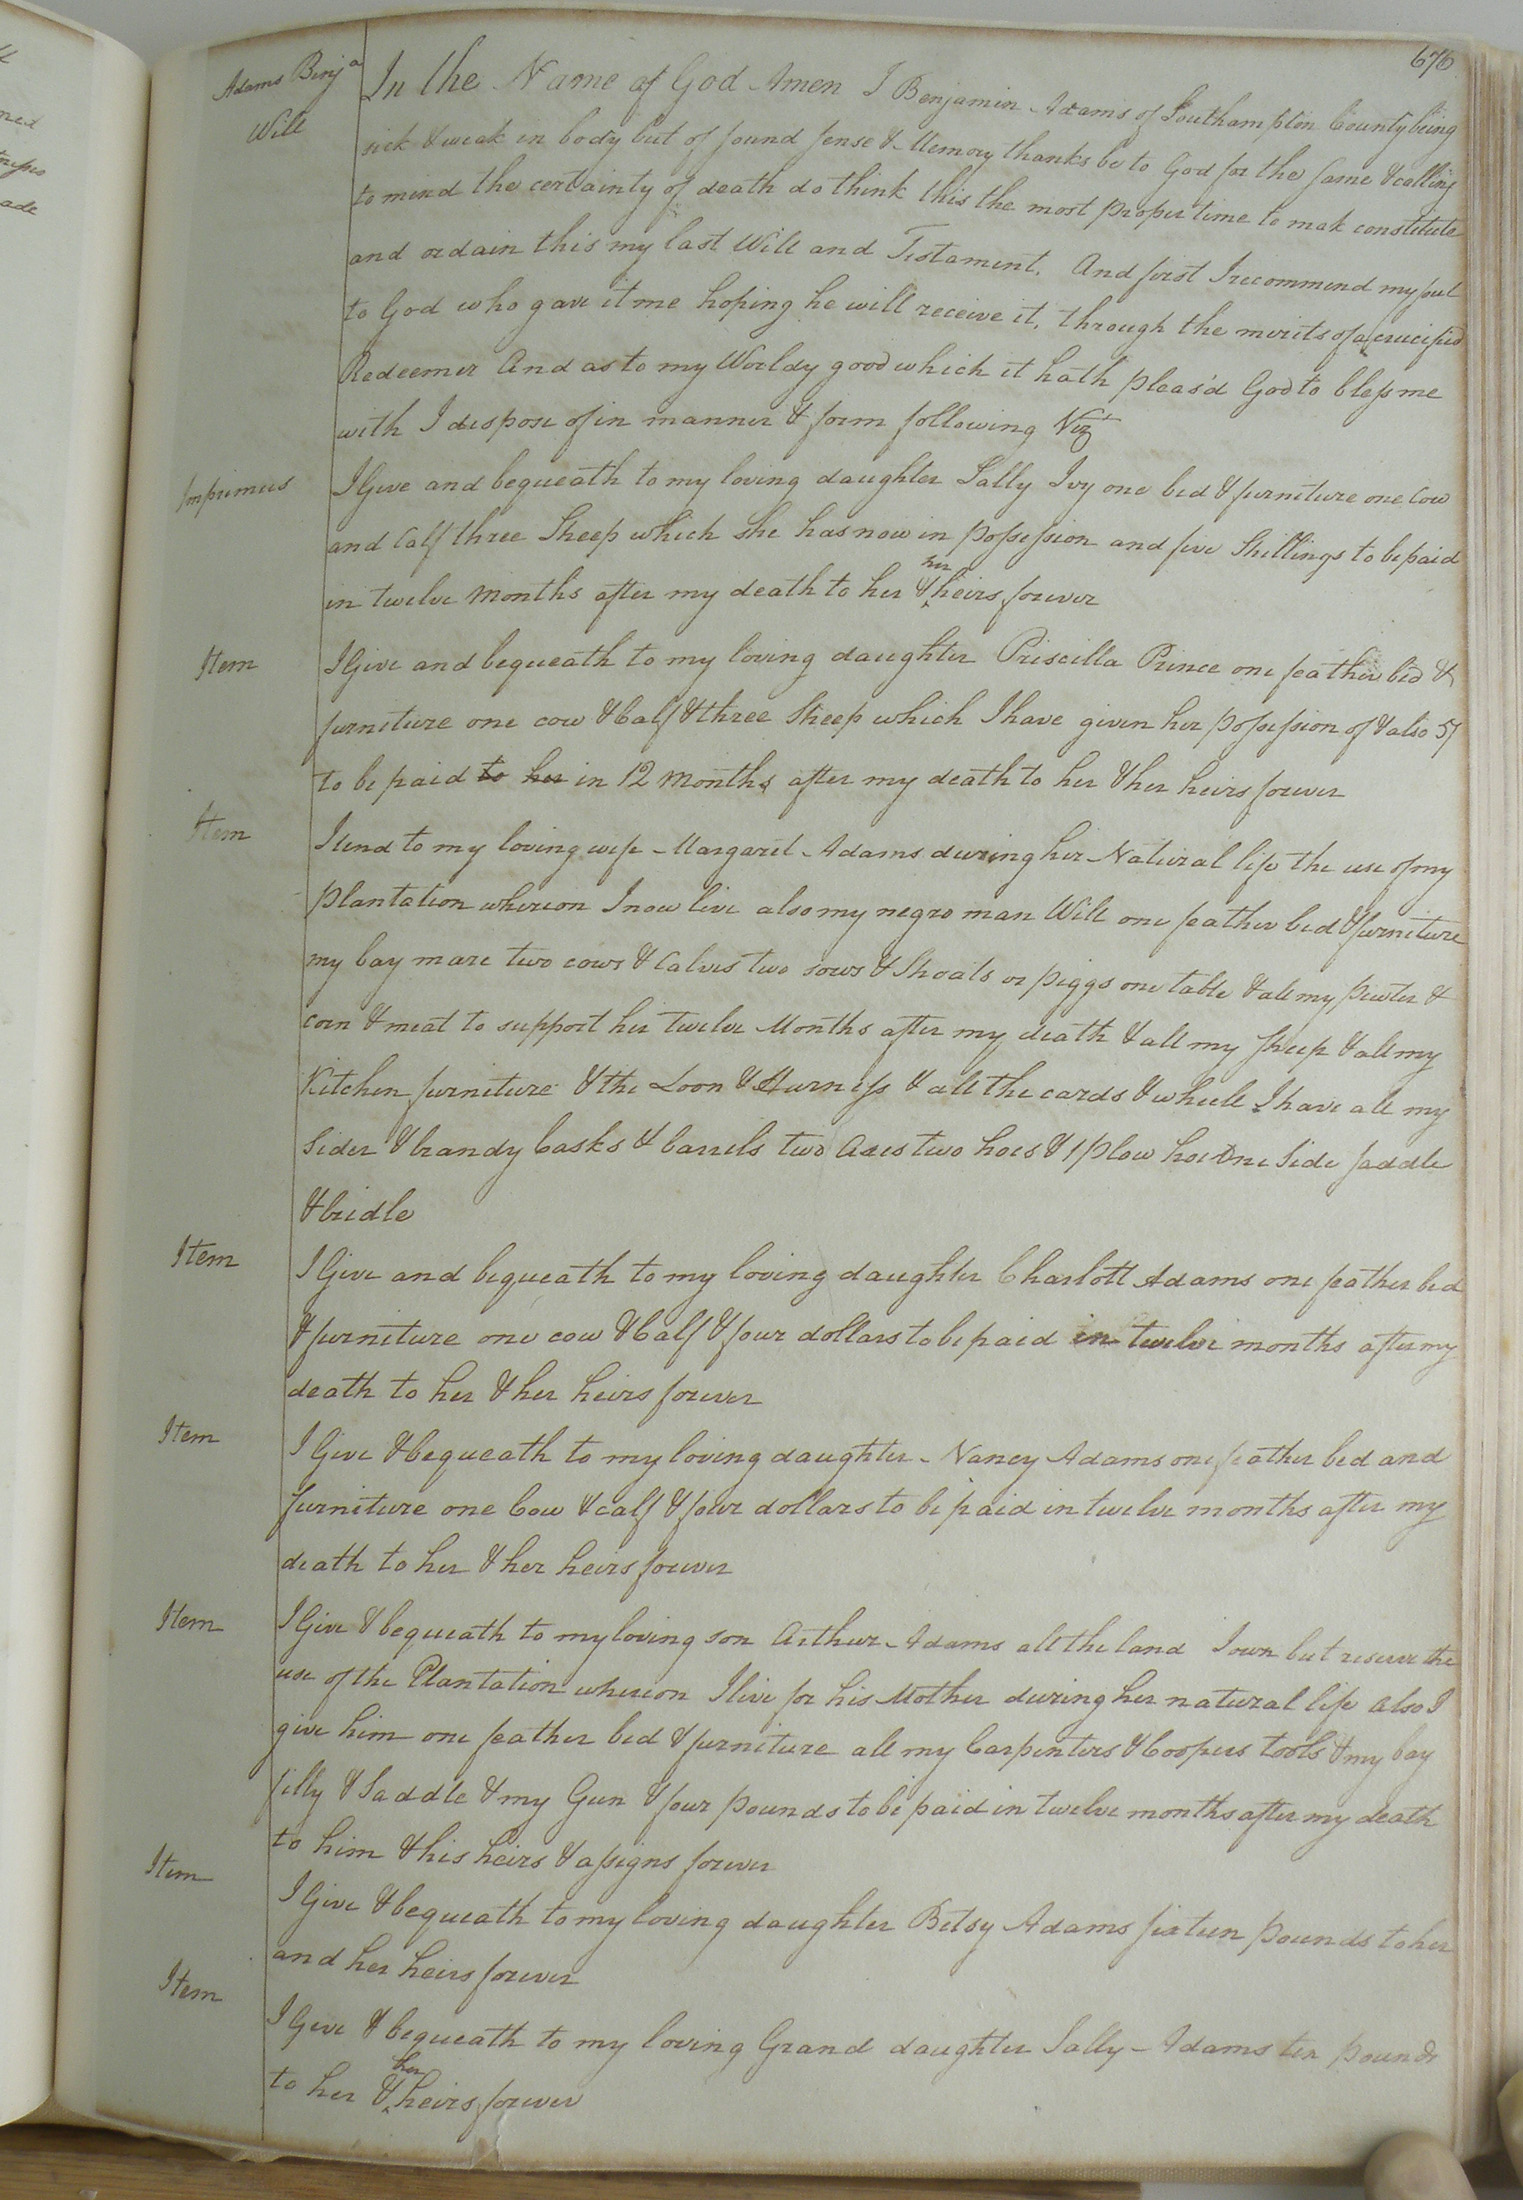 676
Adams Benja
Will
In the Name of God Amen I Benjamin Adams of Southampton County being
sick & weak in body but of sound sense & Memory thanks be to God for the same & calling
to mind the certainty of death do think this the most proper time to mak constitute
and ordain this my last Will and Testament. And first I recommend my soul
to God who gave it me hoping he will receive it, through the merits of a crucified
Redeemer And as to my Worldy good which it hath pleas'd God to bless me
with I dispose of in manner & form following Vizt
Imprimus
I Give and bequeath to my loving daughter Sally Ivy one bed & furniture one Cow
and Calf three Sheep which she has now in possession and five Shillings to be paid
in twelve Months after my death to her & her heirs forever
Item
I Give and bequeath to my loving daughter Priscilla Prince one feather bed &
furniture one cow & Calf & three Sheep which I have given her possession of & also 5/
to be paid to her in 12 Months after my death to her & her heirs forever
Item
I lend to my loving wife Margaret Adams during her Natural life the use of my
Plantation whereon I now live also my negro man Will one feather bed & furniture
my bay mare two cows & Calves two sows & Shoats or piggs one table & all my pewter &
corn & meat to support her twelve Months after my death & all my Sheep & all my
Kitchen furniture & the Loon & Harness & all the cards & wheele I have all my
Sider & brandy Casks & barrels two Axes two hoes & 1 plow hoe One Side saddle
& bridle
Item
I Give and bequeath to my loving daughter Charlott Adams one feather bed
& furniture one cow & Calf & four dollars to be paid in twelve months after my
death to her & her heirs forever
Item
I Give & bequeath to my loving daughter Nancy Adams one feather bed and
furniture one Cow & calf & four dollars to be paid in twelve months after my
death to her & her heirs forever
Item
I Give & bequeath to my loving son Arthur Adams all the land I own but reserve the
use of the Plantation whereon I live for his Mother during her natural life also I
give him one feather bed & furniture all my Carpenters & Coopers tools & my bay
filly & Saddle & my Gun & four pounds to be paid in twelve months after my death
to him & his heirs & assigns forever
Item
I Give & bequeath to my loving daughter Betsy Adams sixteen pounds to her
and her heirs forever
Item
I Give & bequeath to my loving Grand daughter Sally Adams ten pounds
to her & her heirs forever